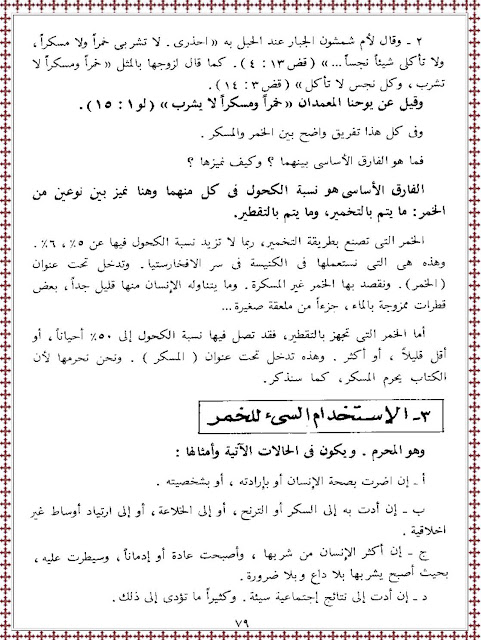 ٢ ـ وقال لأم شمشون الجبار عند الحبل به « احذرى . لا تشربى خمراً ولا مسكراً ،
ولا تأكلى شيئاً نجساً ... » ( قض ١٣ : ٤ ) . كما قال لزوجها بالمثل « خمراً ومسكراً لا
تشرب ، وكل نجس لا تأكل » ( قض ٣ : ١٤ ) .
وقيل عن يوحنا المعمدان « خمراً ومسكراً لا يشرب » ( لو ١ : ١٥ ) .
وفى كل هذا تفريق واضح بين الخمر والمسكر .
فما هو الفارق الأساسى بينهما ؟ وكيف نميزها ؟
الفارق الأساسى هو نسبة الكحول فى كل منهما وهنا نميز بين نوعين من
الخمر : ما يتم بالتخمير، وما يتم بالتقطير.
الخمر التى تصنع بطريقة التخمير، ربما لا تزيد نسبة الكحول فيها عن ٥٪ ، ٦٪ .
وهذه هى التى نستعملها فى الكنيسة فى سر الافخارستيا . وتدخل تحت عنوان
( الخمر ) . ونقصد بها الخمر غير المسكرة . وما يتناوله الإنسان منها قليل جداً ، بعض
قطرات ممزوجة بالماء ، جزءاً من ملعقة صغيرة ...
أما الخمر التى تجهز بالتقطير، فقد تصل فيها نسبة الكحول إلى ٥٠٪ أحياناً ، أو
أقل قليلاً ، أو أكثر . وهذه تدخل تحت عنوان ( المسكر ) . ونحن نحرمها لأن
الكتاب يحرم المسكر، كما سنذكر.
٣ـ الإستخدام السىء للخمر
وهو المحرم . ويكون فى الحالات الآتية وأمثالها :
أ ـ إن اضرت بصحة الإنسان أو بإرادته ، أو بشخصيته .
ب ـ إن أدت به إلى السكر أو الترنح ، أو إلى الخلاعة ، أو إلى ارتياد أوساط غير
اخلاقية .
ج ـ إن أكثر الإنسان من شربها ، وأصبحت عادة أو إدماناً ، وسيطرت عليه ،
بحيث أصبح يشربها بلا داع وبلا ضرورة .
د ـ إن أدت إلى نتائج إجتماعية سيئة . وكثيراً ما تؤدى إلى ذلك .
٧٩